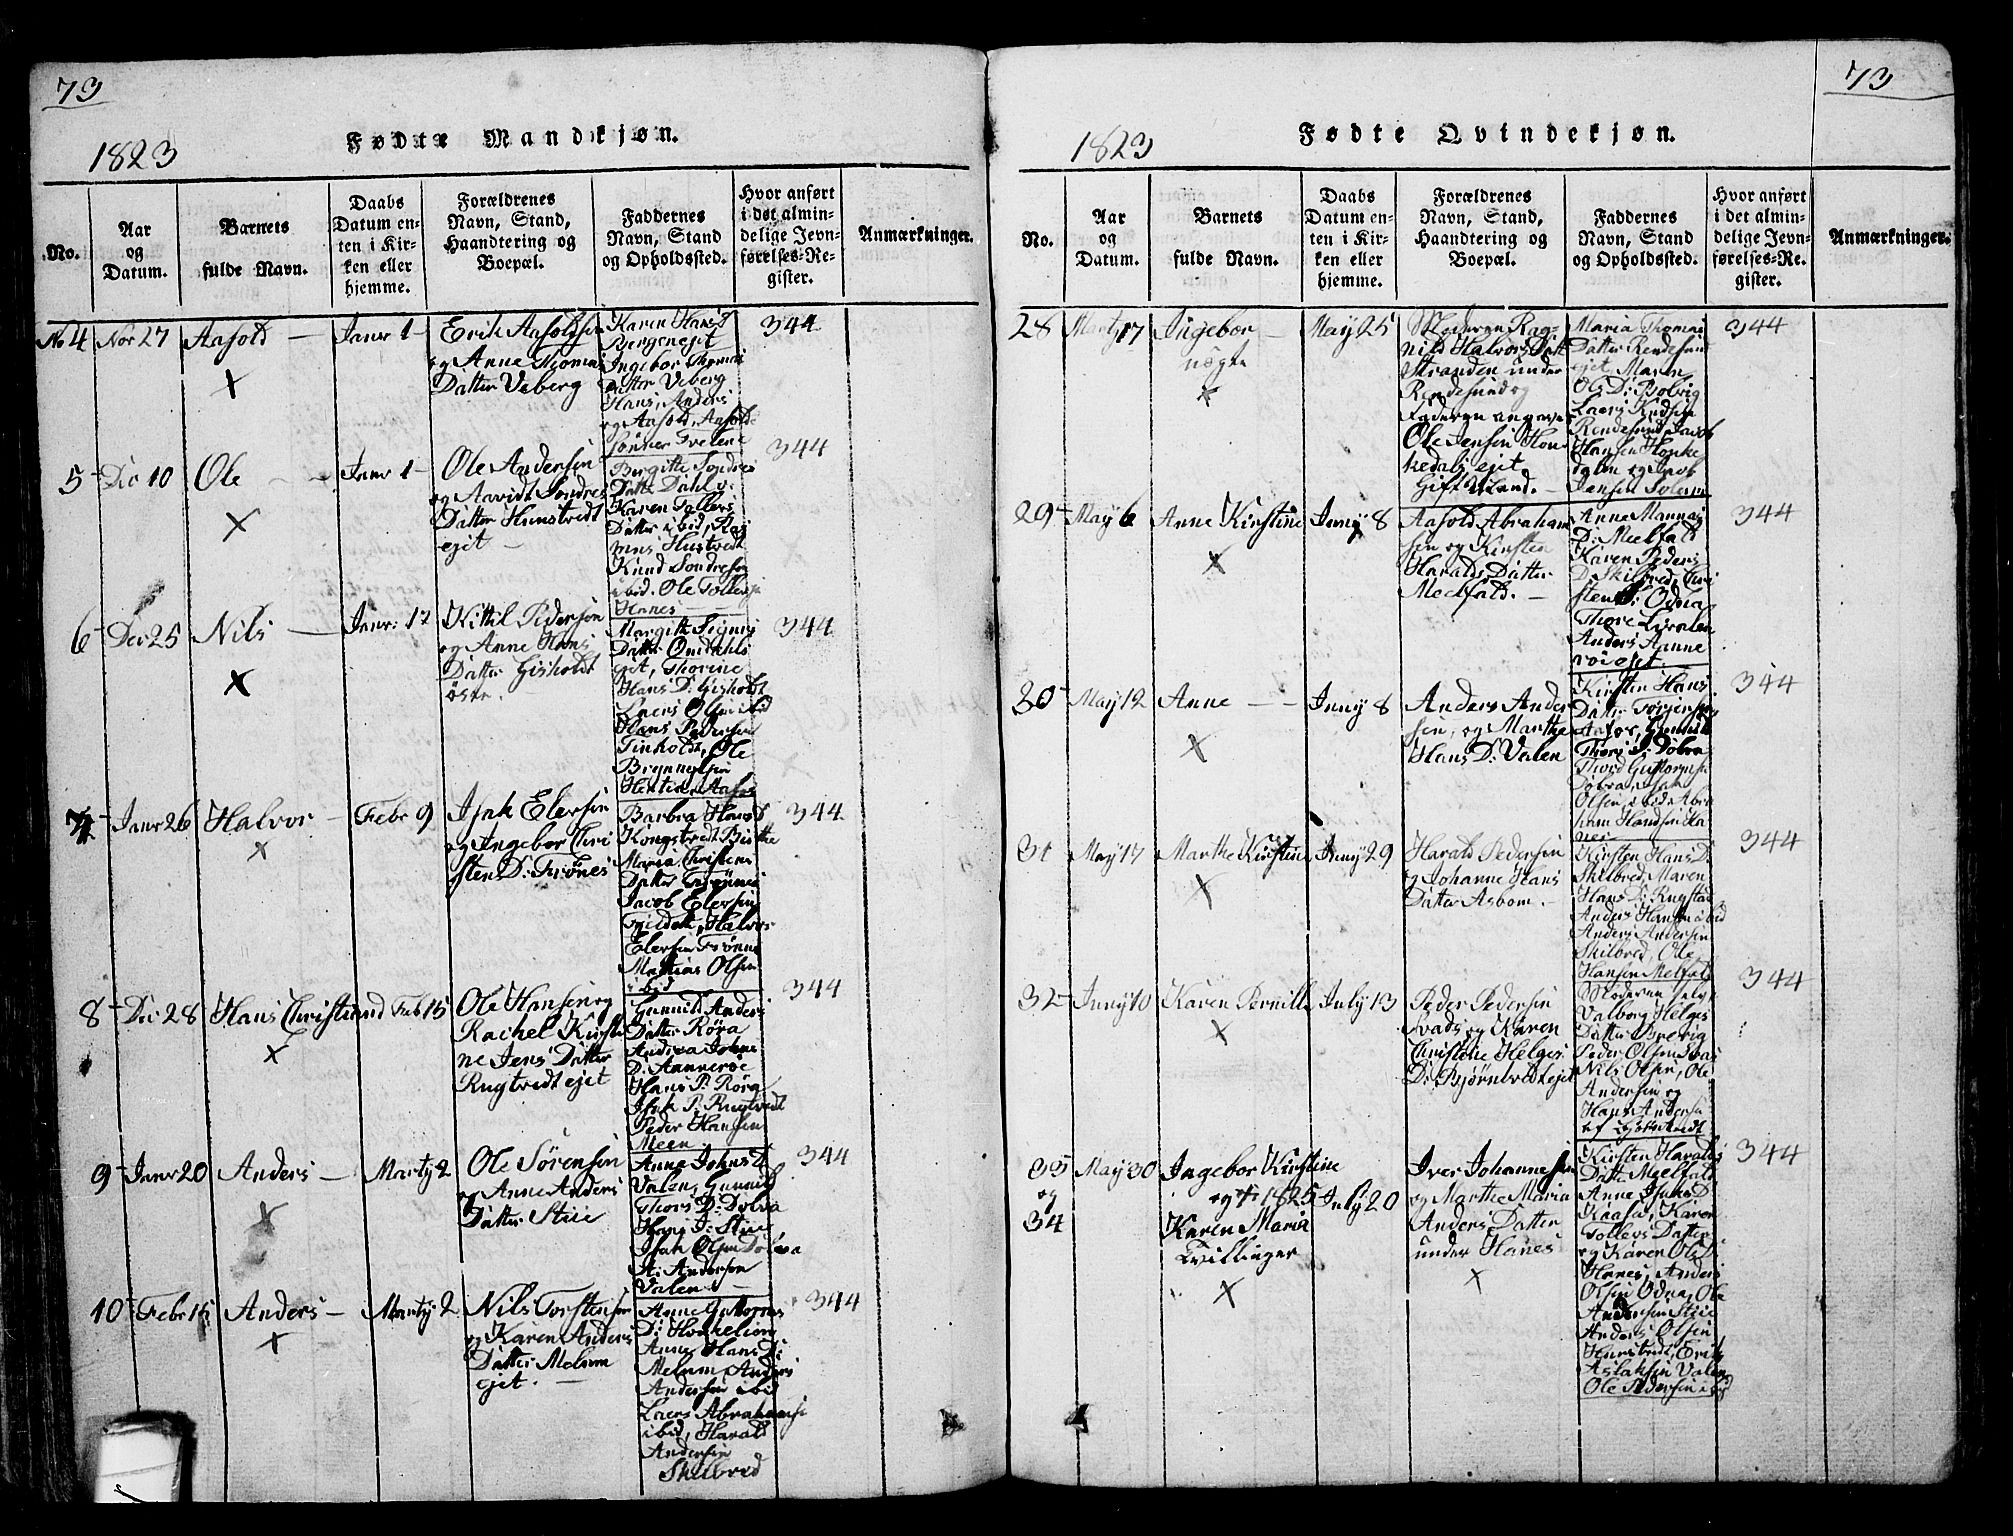 73
1823
Fødte Mandkjøn.
No.
Aar og Datum.
Barnets fulde Navn.
Daabs Datum enten i Kirken eller hjemme.
Forældrenes Navn, Stand, Haandtering og Boepæl.
Faddernes Navn, Stand og Opholdssted.
Hvor anført i det almindelige Jevnførelses-Register.
Anmærkninger.
No 4 Nor 27 Aasold — Janr 1 — Erik Aasoldsen
og Anne Thomas
Datter Veberg
X
Karen Hans D
Bergene ejet
Ingebor Thomas
Datter Veberg
Hans, Anders
og Aasold, Aasold
sønner Tvetene
344
5 — Der 10 Ole — Janr 1 — Ole Andersen
og Aarvidt Sondres
Datter Hunstvedt
ejet —
X
Birgitte Sondres
Datter Dahl
Karen Tollevs
Datter ibid,
Hustvedt
Knud Sondresen
ibid. Ole Tollevsen
Hanes —
344
6 — Der 25 Nils — Janr: 12 Kittil Pedersen
og Anne Hans
Datter Gisholdt
østre.
X
Margith
Datter Omdahls
ejet, Thorine
Hans D: Gisholdt
Laers Olsen ibid
Hans Pedersen
Tinholdt, Ole
Brynnelsen
344
7 — Janr 26 Halvor — Febr 9 Isak Elersen
og Ingebor Chri
stens D: Trönes
X
Barbra Hans D
Kongstvedt Birthe
Maria Christens
Datter Trönnes
Jacob Elersen
Halvor
Elersen Trönnes
Mathias Olsen
ibid
344
8 — Der 28 Hans Christiund Feb 15 Ole Hansen og
Rachel Kirsti
ne Jens Datter
Rugtvedt ejet
X
Gunnild Anders
Datter Röra
Andrea Johns
D: Anneröe
Hans P: Röra
Isak P: Rugtvedt
Peder Hansen
Meen.
344
9 — Janr 20 Anders — Marty 2 Ole Sörensen
og Anne Anders
Datter Stiie
X
Anne Johns D
Valen, Gunnild
Thors D: Dolva
Hans J: Stiie
Isak Olsen Dolva
A: Andersen
Valen —
344
10 — Febr 15 Anders — Marty 2 Nils Torstensen
og Karen Anders
Datter Melum
ejet. —
X
Anne Guttorms
D: Honkelien
Anne Hans D:
Melum, Anders
Andersen ibid
Laers Abrahamsen
ibid, Harald
Andersen
Skilbred
344
73
1823
Fødte Qvindekjøn.
No.
Aar og Datum.
Barnets fulde Navn.
Daabs Datum enten i Kirken eller hjemme.
Forældrenes Navn, Stand, Haandtering og Boepæl.
Faddernes Navn, Stand og Opholdssted.
Hvor anført i det almindelige Jevnførelses-Register.
Anmærkninger.
28 Marty 17 Ingebor — May 25 Moderen Rag-
nild Halvors Datt
Stranden under
Rendesund og
Faderen angaves
Ole Jensen Hon
kedals ejet
Gift Mand. —
uægte
X
Maria Thomas
Datter Rendesund
ejet, Maren
Ols D: Bolvig
Laers Kndsen
Rendesund, Jacob
Hansen Honke
dalen og Jacob
Jansen Solum
344
29 — May 6 Anne Kirstine Juny 8 Aasold Abraham
sen og Kirsten
Haralds Datter
Meelfald. —
X
Anne Mannas
D: Meelfald
Karen Peders
D: Skilbred, Chri
sten J: Odna
Thore Lövalen
Anders Aanne
344
30 — May 12 Anne — — Juny 8 Anders Ander
sen, og Marthe
Hans D: Valen
X
Kirsten Hans
Datter
Aafos, Gunnild
Thors D: Dolva
Thord Guttormsen
Dolva, Isak
Olsen, ibid Abra
ham Handsen Ha
nes
344
31 May 17 Marthe Kirstine Juny 29 Harald Pedersen
og Johanne Hans
Datter Asbom. —
X
Kirsten Hans D:
Skilbred, Maren
Hans D: Rugstad
Anders Hansen ibid
Anders Andersen
Skilbred, Ole
Hansen Melfald
344
32 — Juny 10 Karen Pernille July 13 Peder Pedersen
Svads og Karen
Christine Helges
D: Bjørntvedt ejet
X
Moderen selv,
Valborg Helges
Datter Brevig
Peder Olsen Svas
Nils Olsen, Ole
Andersen og
Hans Andersen
af
344
33 May 30 Ingebor Kirstine
og og † 1825 July 20
34 Karen Maria
Tvillinger
X
Iver Johannesen
og Marthe Maria
Anders Datter
under Hanes
X
Kirsten Haralds
Datt: Meelfald
Anne Isaks D:
Kaasa, Karen
Tollevs Datter
og Karen Ols D:
Hanes, Anders
Olsen Odna, Ole
Andersen Stiie
Anders Olsen
Hunstvedt, Erik
Aslaksen Valen
Ole Pedersen ibid
344